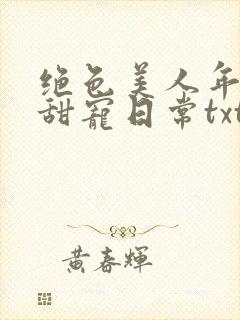 绝色美人年
甜宠日常txt
黄春辉